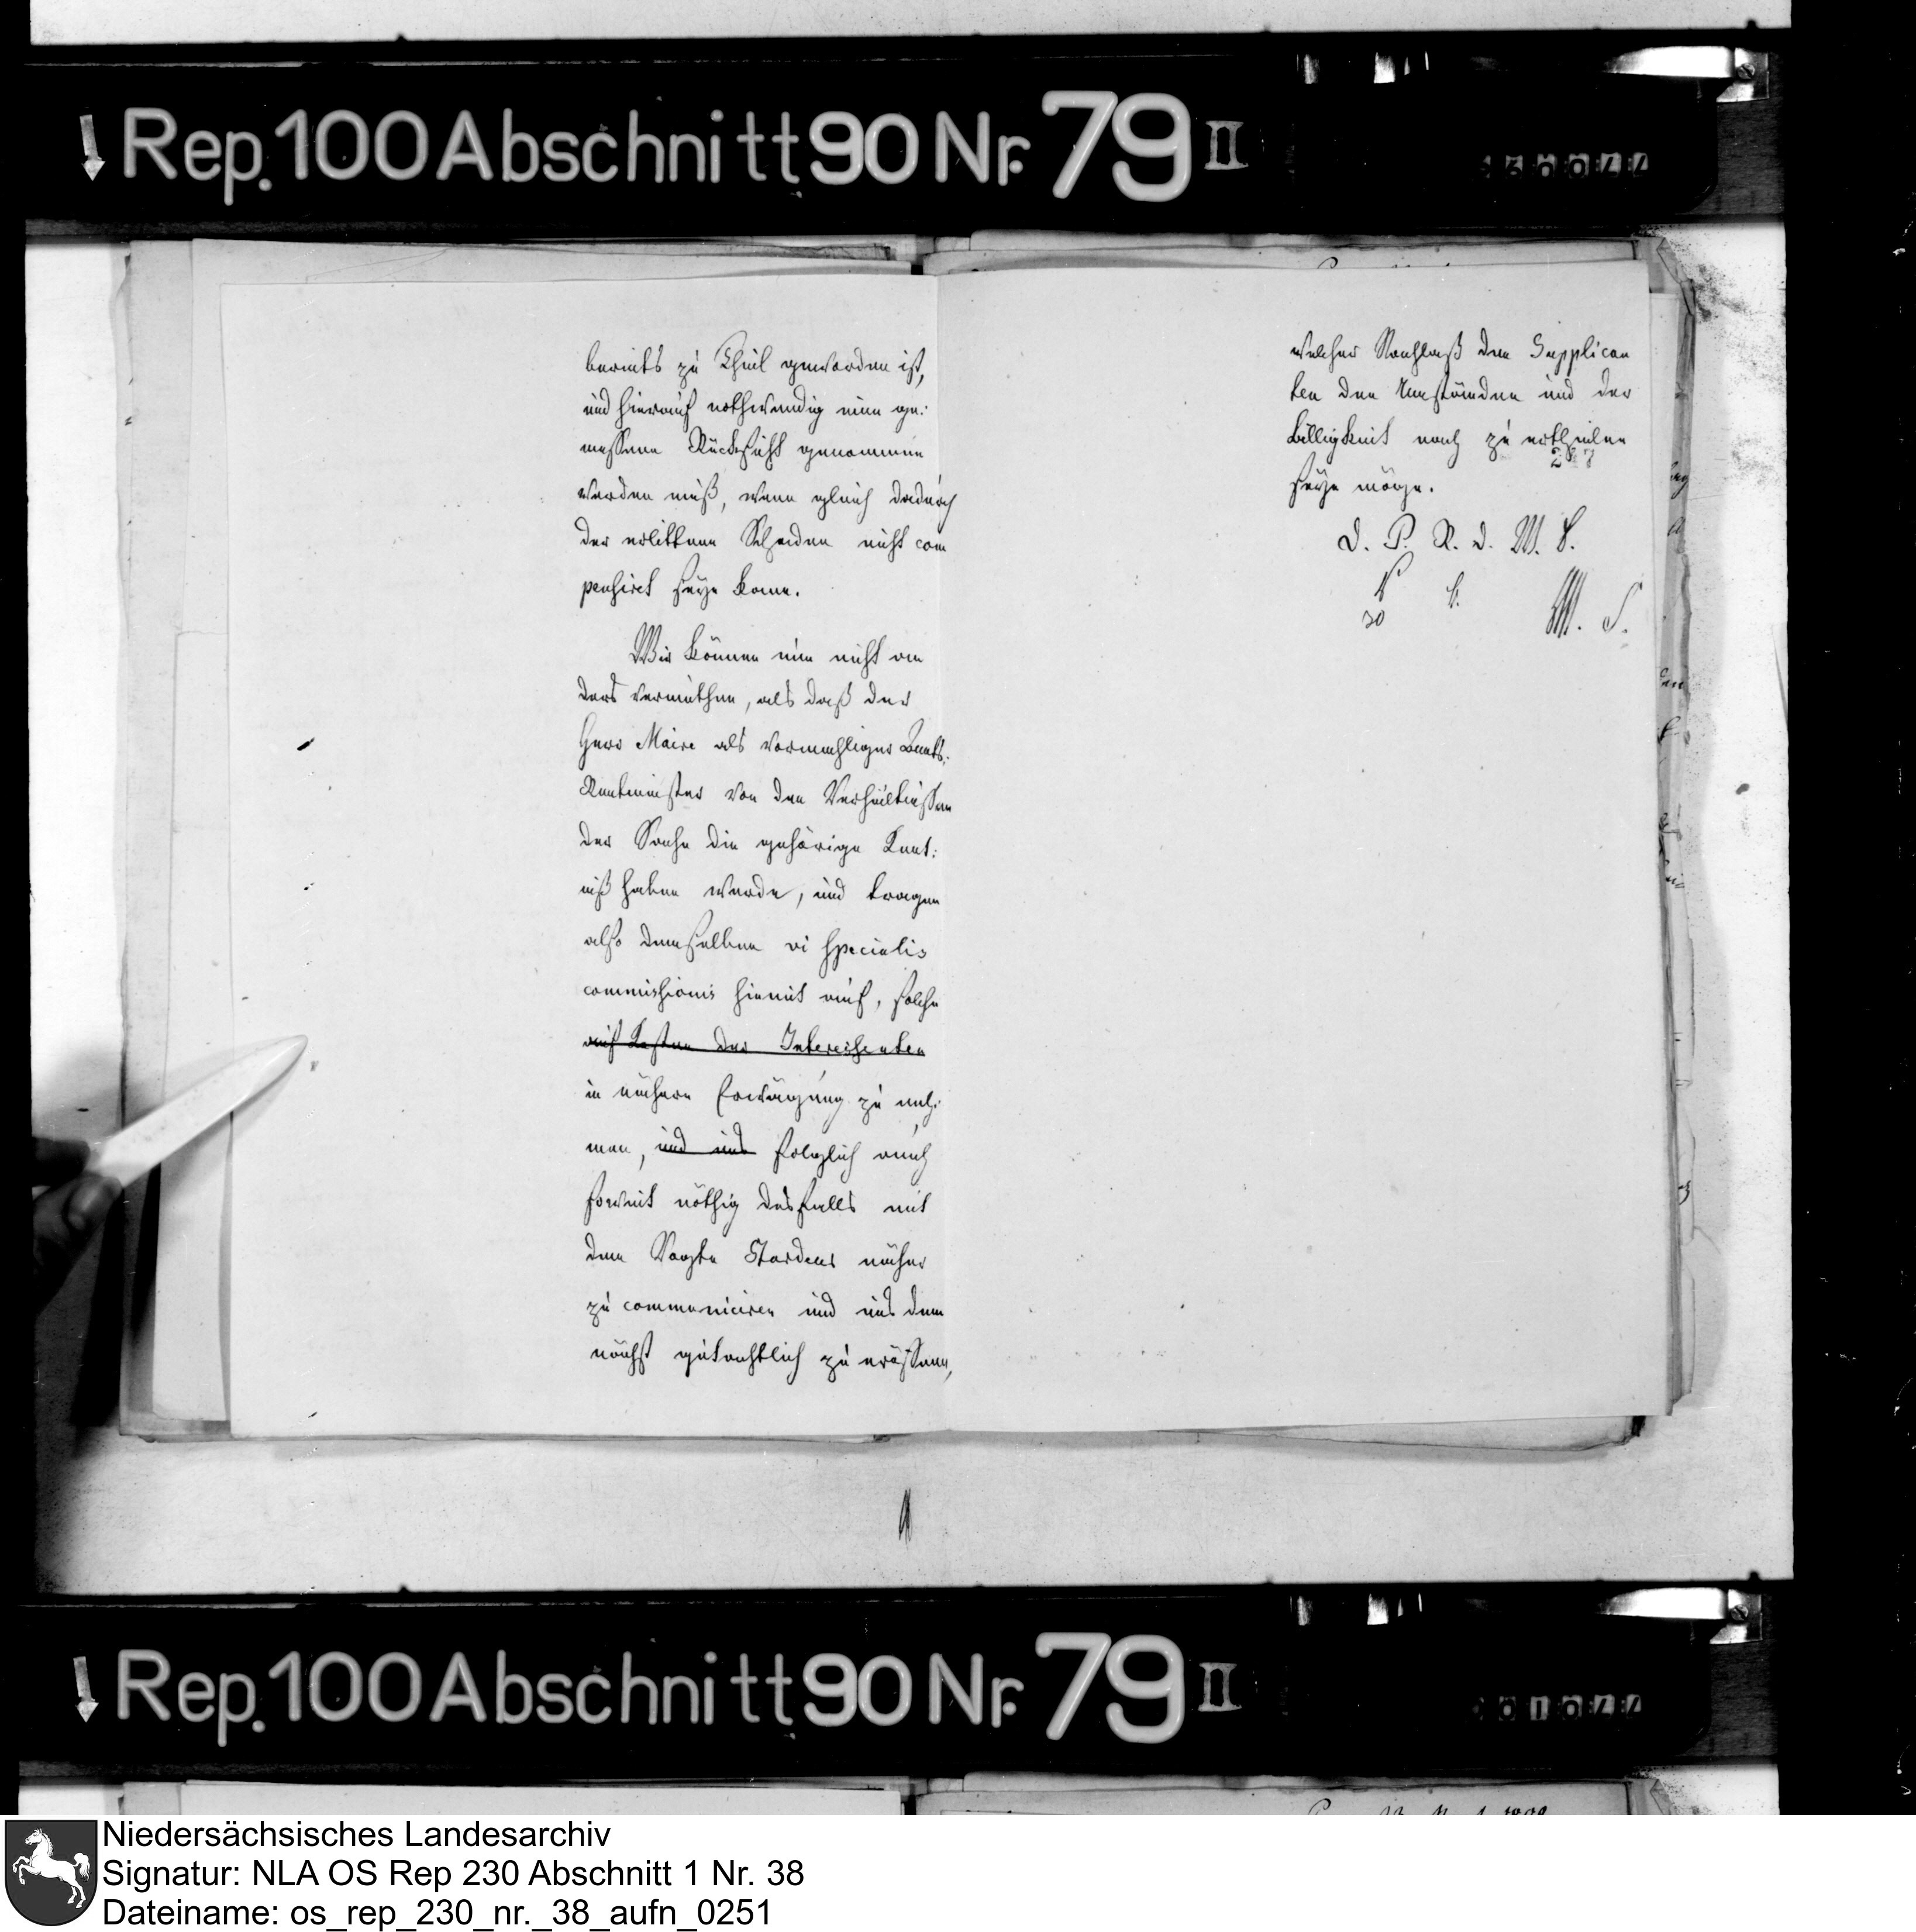 Rep. 100 Abschnitt 90 Nr. 79 II
bereits zu Theil geworden ist,
und hierauf nothwendig eine ge:
messene Rücksicht genommen
werden muß, wenn gleich dadurch
der erlittene Schaden nicht com
pensiret seyn kann.
Wir können nun nicht an
ders vermuthen, als daß der
Herr Maire als vormahliger Amts:
Rentmeister von den Verhältnissen
der Sache die gehörige Kent:
niß haben werde, und tragen
also demselben vi specialis
commissionis hiemit auf, solche
auf Kosten der Interessenten
in nähere Erwägung zu neh:
men, und uns folglich auch
soweit nöthig desfalls mit
dem Vogte Stordeur näher
zu communiciren und uns dem
nächst gutachtlich zu eröffnen,
welcher Nachlaß den Supplican
ten den Umständen und der
Billigkeit nach zu ertheilen
seyn möge.
D. P. R. d. W. D.
M. S.
Rep. 100 Abschnitt 90 Nr. 79 II
Niedersächsisches Landesarchiv
Signatur: NLA OS Rep 230 Abschnitt 1 Nr. 38
Dateiname: os_rep_230_nr._38_aufn_0251